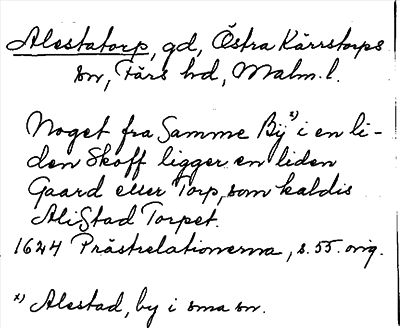 Alestatorp, gd, Östra Kärrstorps
sn, Färs hd, Malm.l.
Noget fra Samme Bij x) i en li-
den Skoff ligger en liden
Gaard eller Torp, som kaldis
AliStad Torpet.
1624 Prästrelationerna, s. 55. orig.
x) Alestad, by i sma sn.